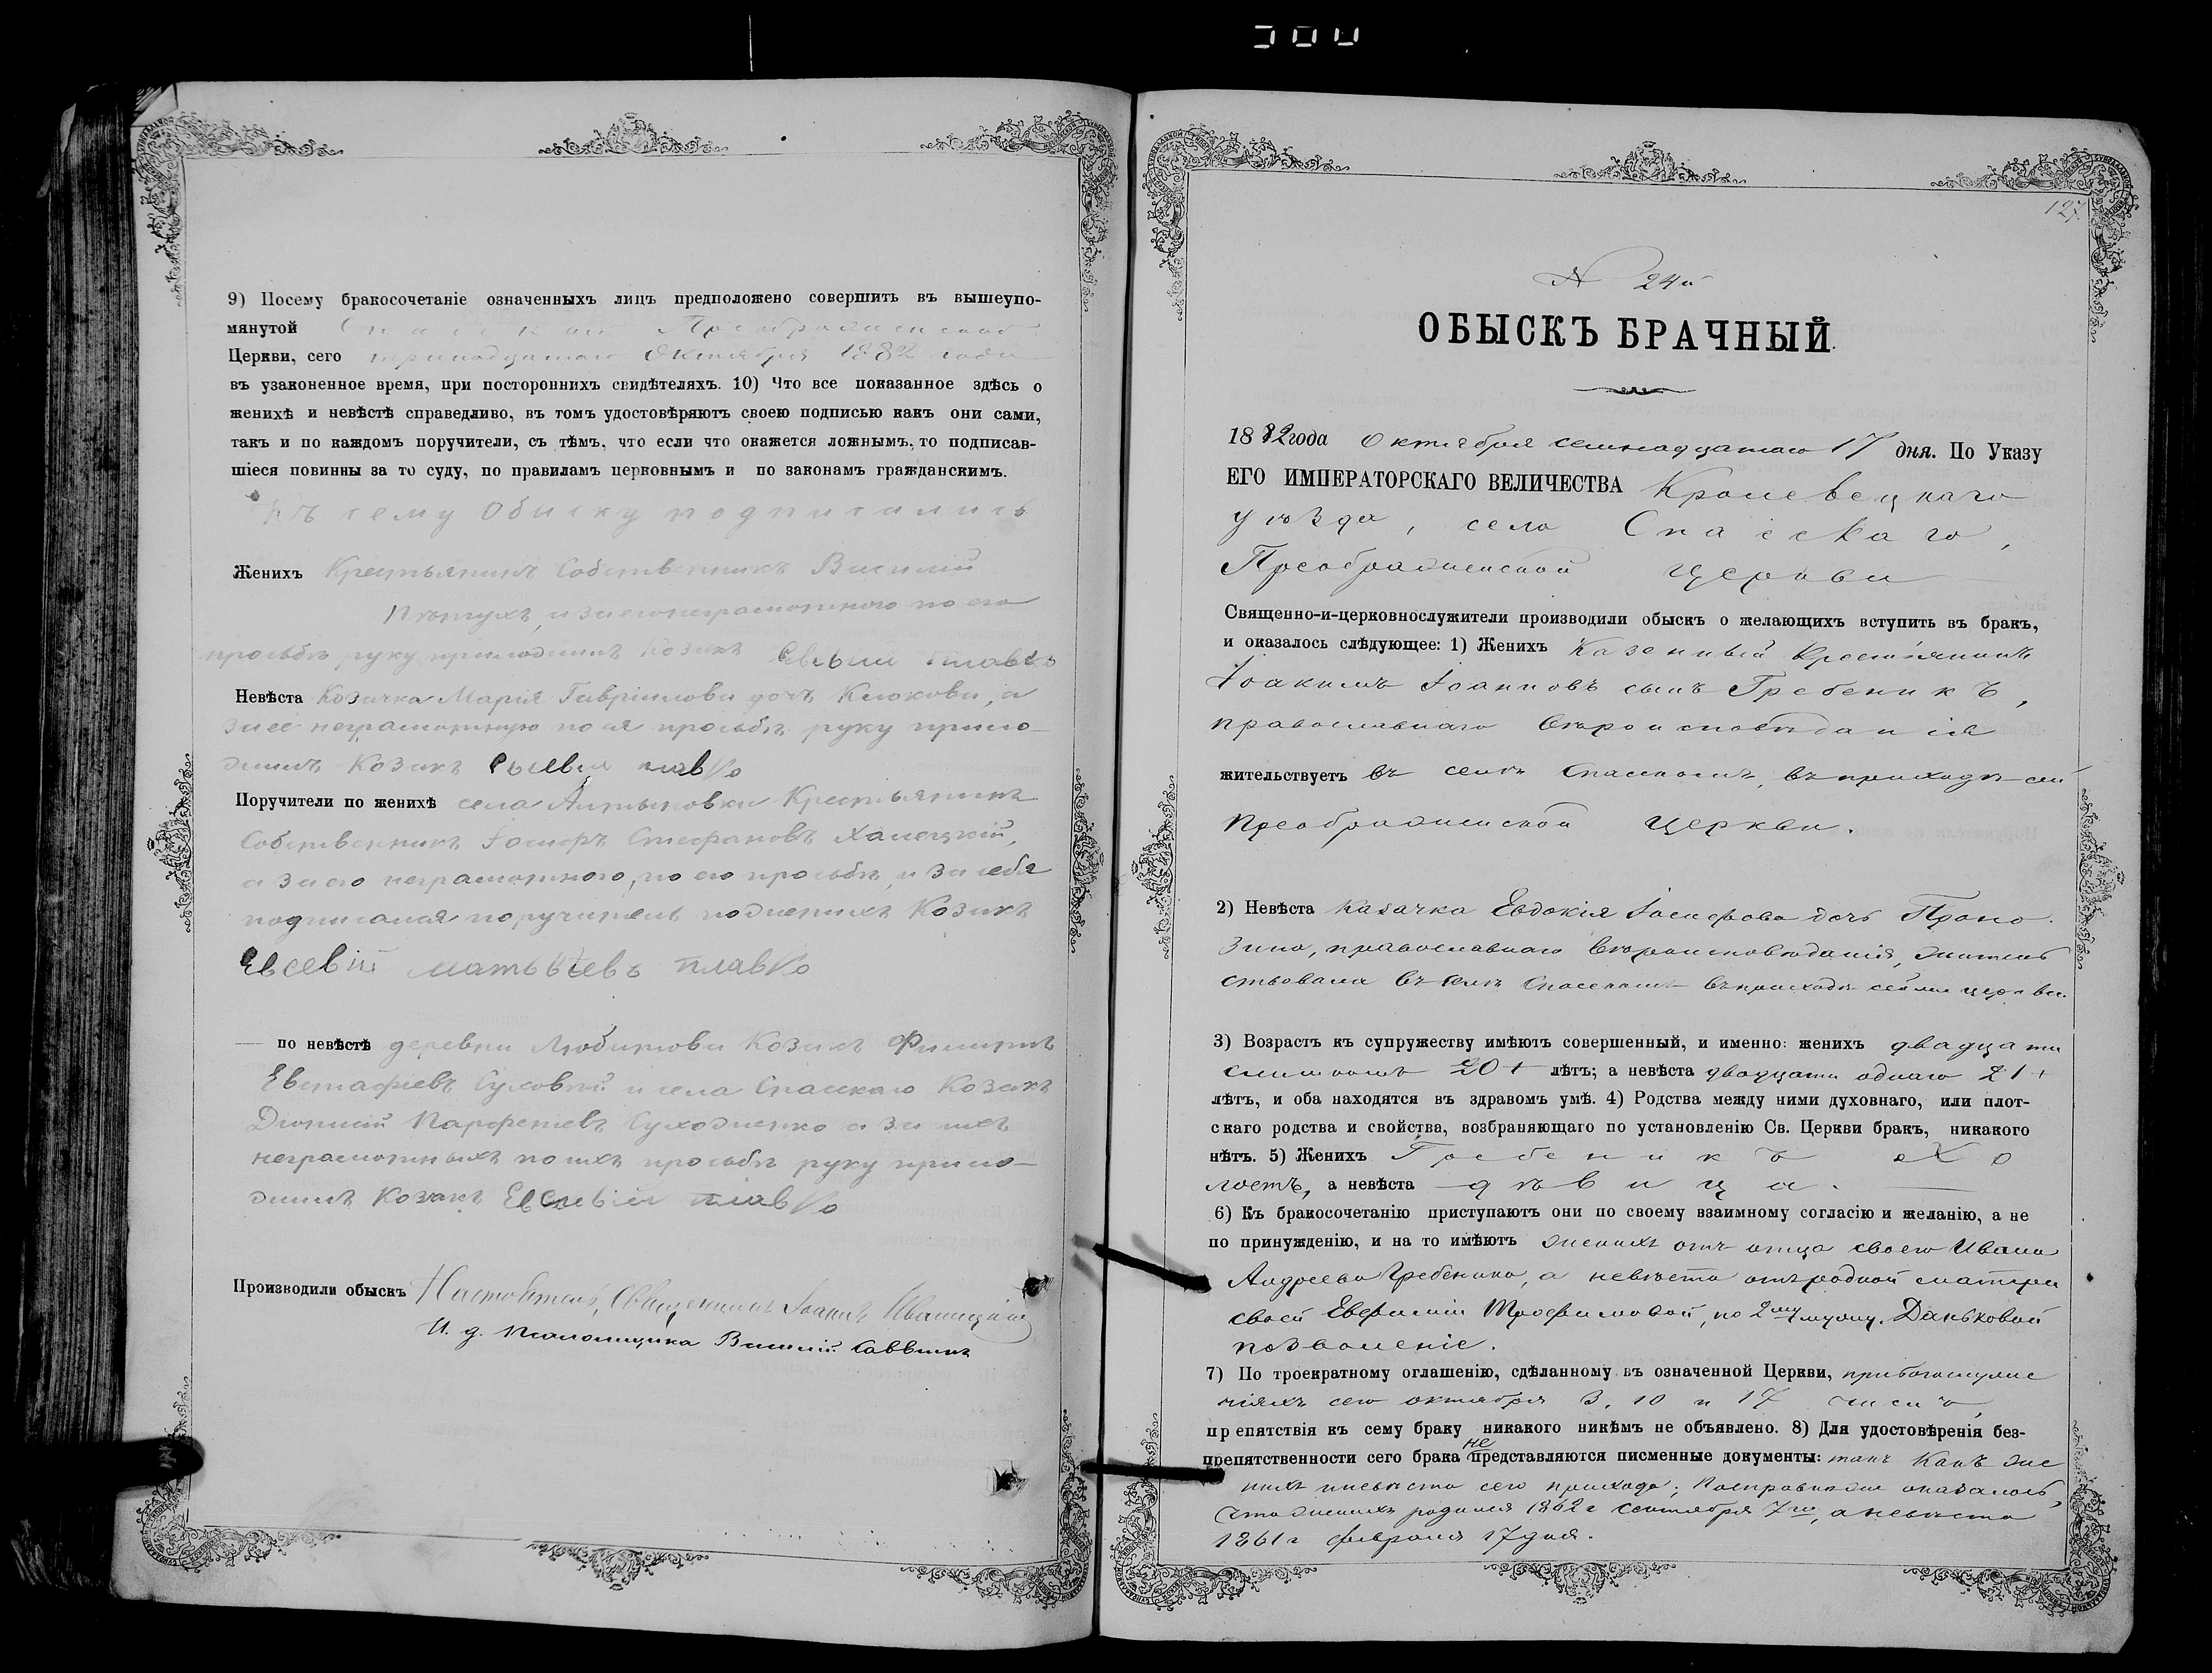 9) Посему бракосочетаніе означенныхъ лицъ предположено совершить въ вышеупо-
мянутой Спасской Преображенской
Церкви, сего тринадцатаго Октября 1882 года
въ узаконенное время, при постороннихъ свидѣтеляхъ. 10) Что все показанное здѣсь о
женихѣ и невѣстѣ справедливо, въ томъ удостовѣряютъ своею подписью какъ они сами,
такъ и по каждомъ поручители, съ тѣмъ, что если что окажется ложнымъ, то подписав-
шіеся повинны за то суду, по правиламъ церковнымъ и по законамъ гражданскимъ.
Къ сему Обыску подписались
Женихъ Крестьянинъ Собственникъ Василій
Пѣтухъ, и за его неграмотного по его
прозьбѣ руку приложилъ Козакъ Евсевій плавко
Невѣста Козачка Марія Гавріилова дочь Клюкова, а
за ее неграмотную по ея прозьбѣ руку прило-
жилъ Козакъ Евсевій плавко
Поручители по женихѣ села Алтыновки Крестьянинъ
Собственникъ Іосифъ Стефановъ Халецкій,
а за его неграмотного, по его прозьбѣ, и за себя
подписался поручитель по женихѣ Козакъ
Евсевій матвѣевъ плавко
по невѣстѣ деревни Любитова Козакъ Филиппъ
Евстафіевъ Суховѣй и села Спасскаго Козакъ
Діонисій Парфеніевъ Суходиенко а за ихъ
неграмотныхъ по ихъ прозьбѣ руку прило-
жилъ Козакъ Евсевій плавко
Производили обыскъ Настоятель, Священникъ Іоаннъ Иваницкій
И. д. Псаломщика Василій Саввинъ
127
N 24й
ОБЫСКЪ БРАЧНЫЙ.
1882 года Октября семнадцатаго 17 дня. По Указу
ЕГО ИМПЕРАТОРСКАГО ВЕЛИЧЕСТВА Кролевецкаго
уѣзда, села Спасскаго,
Преображенской Церкви
Священно-и-церковнослужители производили обыскъ о желающихъ вступить въ бракъ,
и оказалось слѣдующее: 1) Женихъ Казенный Крестьянинъ
Іоакимъ Іоанновъ сынъ Гребеникъ,
православнаго вѣроисповѣданія
жительствуетъ въ селѣ Спасскомъ, въ приходѣ сей
Преображенской Церкви.
2) Невѣста Казачка Евдокія Іосифова дочь Проно
зина, православнаго вѣроисповѣданія, житель
ствовала въ селѣ Спасскомъ въ приходѣ сей же церкви.
3) Возрастъ къ супружеству имѣютъ совершенный, и именно: женихъ двадцати
слишкомъ 20+ лѣтъ; а невѣста двадцати одного 21+
лѣтъ, и оба находятся въ здравомъ умѣ. 4) Родства между ними духовнаго, или плот-
скаго родства и свойства, возбраняющаго по установленію Св. Церкви бракъ, никакого
нѣтъ. 5) Женихъ Гребеникъ хо
лостъ, а невѣста дѣвица.
6) Къ бракосочетанію приступаютъ они по своему взаимному согласію и желанію, а не
по принужденію, и на то имѣютъ женихъ отъ отца своего Ивана
Андреева Гребеника, а невѣста отъ родной матери
своей Евфиміи Трофимовой, по 2му мужу, Даньковой
позволеніе.
7) По троекратному оглашенію, сдѣланному въ означенной Церкви, при богослуже
ніяхъ сего октября 3, 10 и 17 числъ,
препятствія къ сему браку никакого никѣмъ не объявлено. 8) Для удостовѣренія без-
препятственности сего брака не представляются писменные документы: такъ Какъ же
нихъ и невѣста сего прихода; По справкѣ же оказалось,
что женихъ родился 1862 г сентября 7го, а невѣста
1861 г февраля 17 дня.